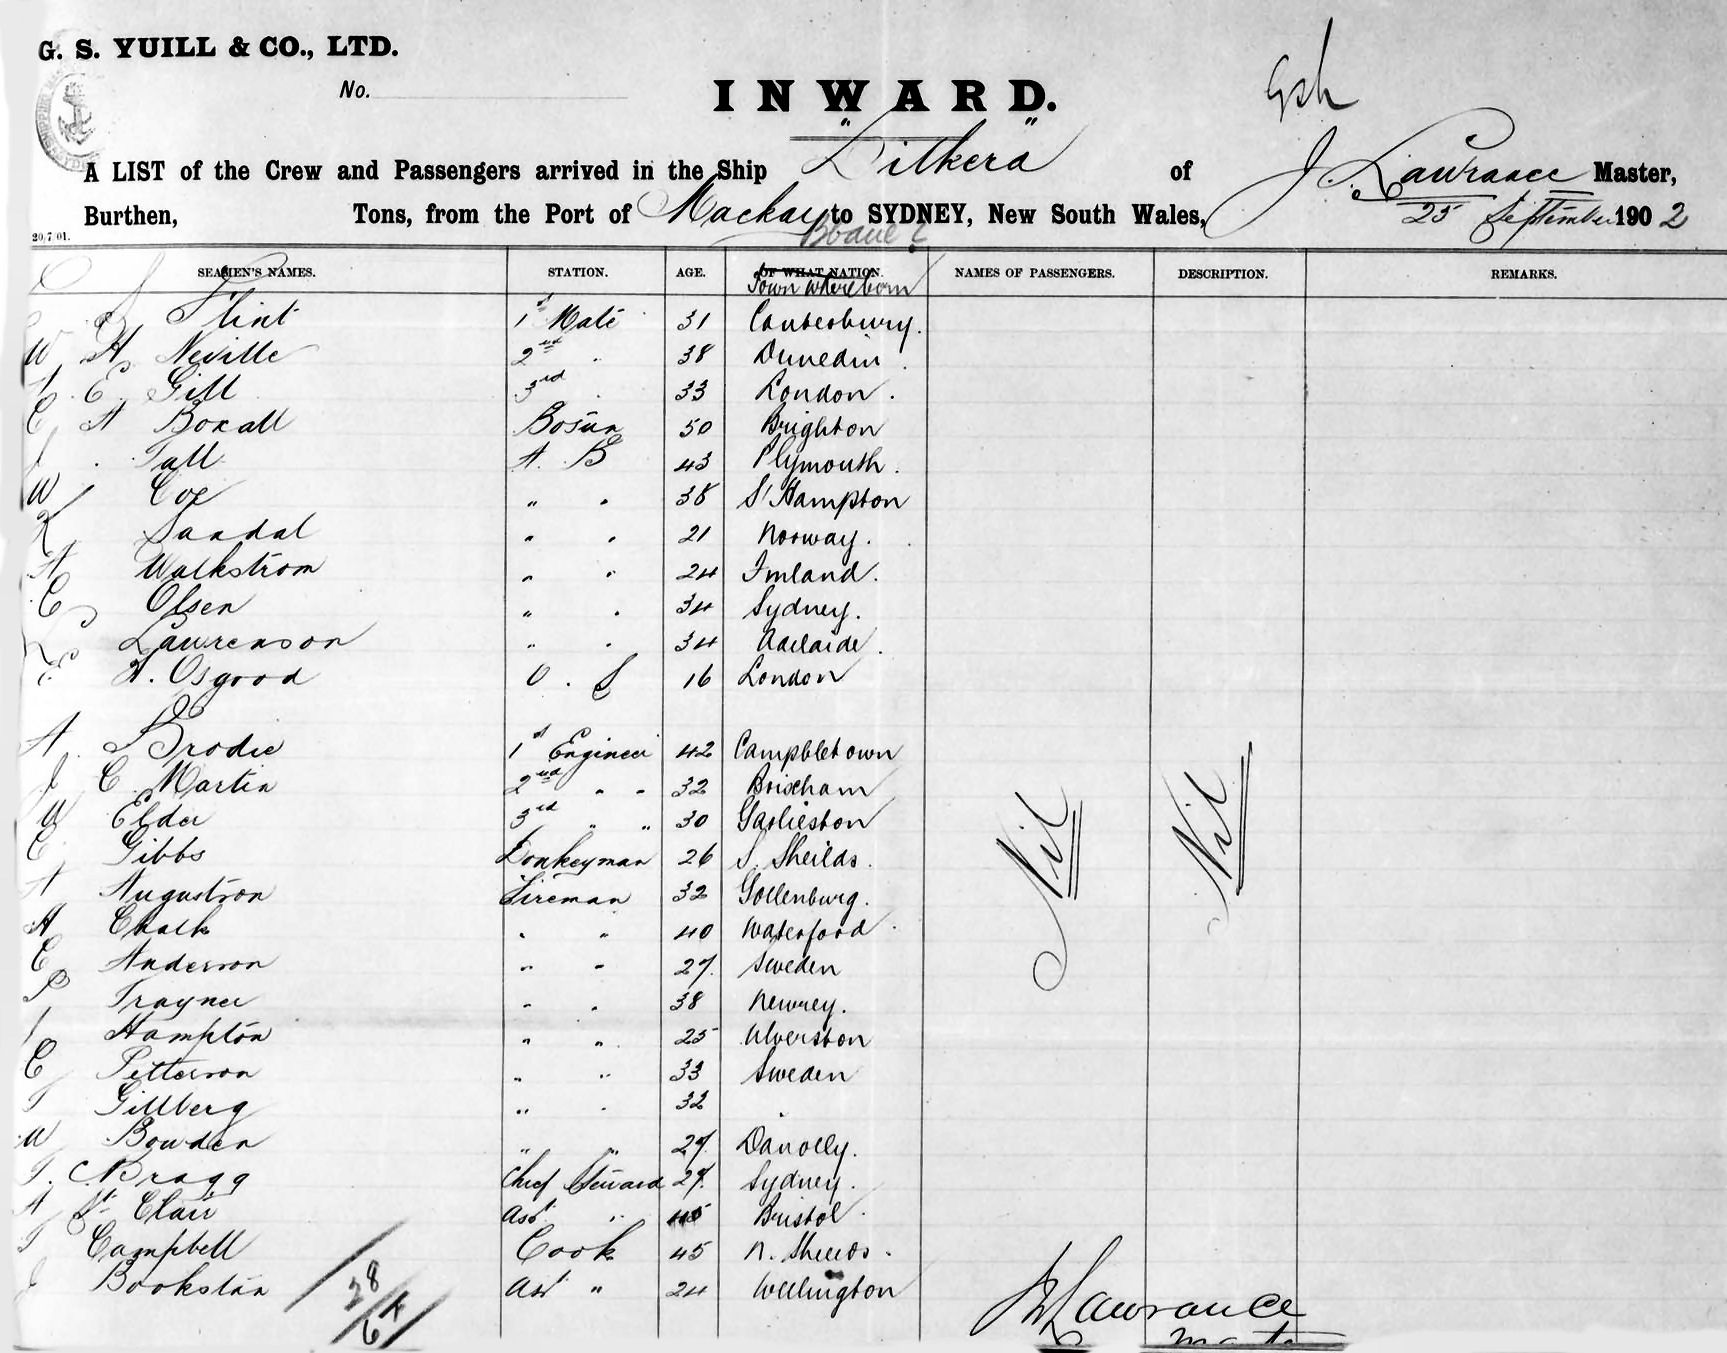 G. S. YUILL & CO., LTD.
No.
INWARD.
A LIST of the Crew and Passengers arrived in the Ship "Zithera" of J. Lawrance Master,
Burthen, Tons, from the Port of Mackay to SYDNEY, New South Wales, 25 September 1902
20/7/01.
SEAMEN'S NAMES. STATION. AGE. OF WHAT NATION. NAMES OF PASSENGERS. DESCRIPTION. REMARKS.
Town where born
Flint 1st Mate 31 Canterbury.
W H Neville 2nd " 38 Dunedin
E Gill 3rd " 33 London.
C A Boxall Bosun 50 Brighton
J Tall A. B 43 Plymouth.
W Coe " " 38 S'Hampton
K Sandal " " 21 Norway.
A Walkstrom " " 24 Finland.
C Olsen " " 34 Sydney.
L Lawrenson " " 34 Adelaide.
E H. Osgood O. S 16 London
A. Brodie 1st Engineer 42 Campbletown
J C Martin 2nd " " 32 Brixham
W Elder 3rd " " 30 Garlieston
C Gibbs Donkeyman 26 S. Sheilds.
A Augustson Fireman 32 Gottenburg.
A Chalk " " 40 Waterford
C Anderson " " 27. Sweden
P Trayner " " 38 Newrey.
J Hampton " " 25 Ulverston
C Petterson " " 33 Sweden
T Gillberg " " 32 "
W Bowden " " 27. Danolly.
T. Bragg Chief Steward 27. Sydney.
A St Clair Asst " 45 Bristol.
T Campbell Cook 45 N. Sheilds.
J Bookstan Asst " 24 Wellington
Nil Nil
28
J Lawrance
Master